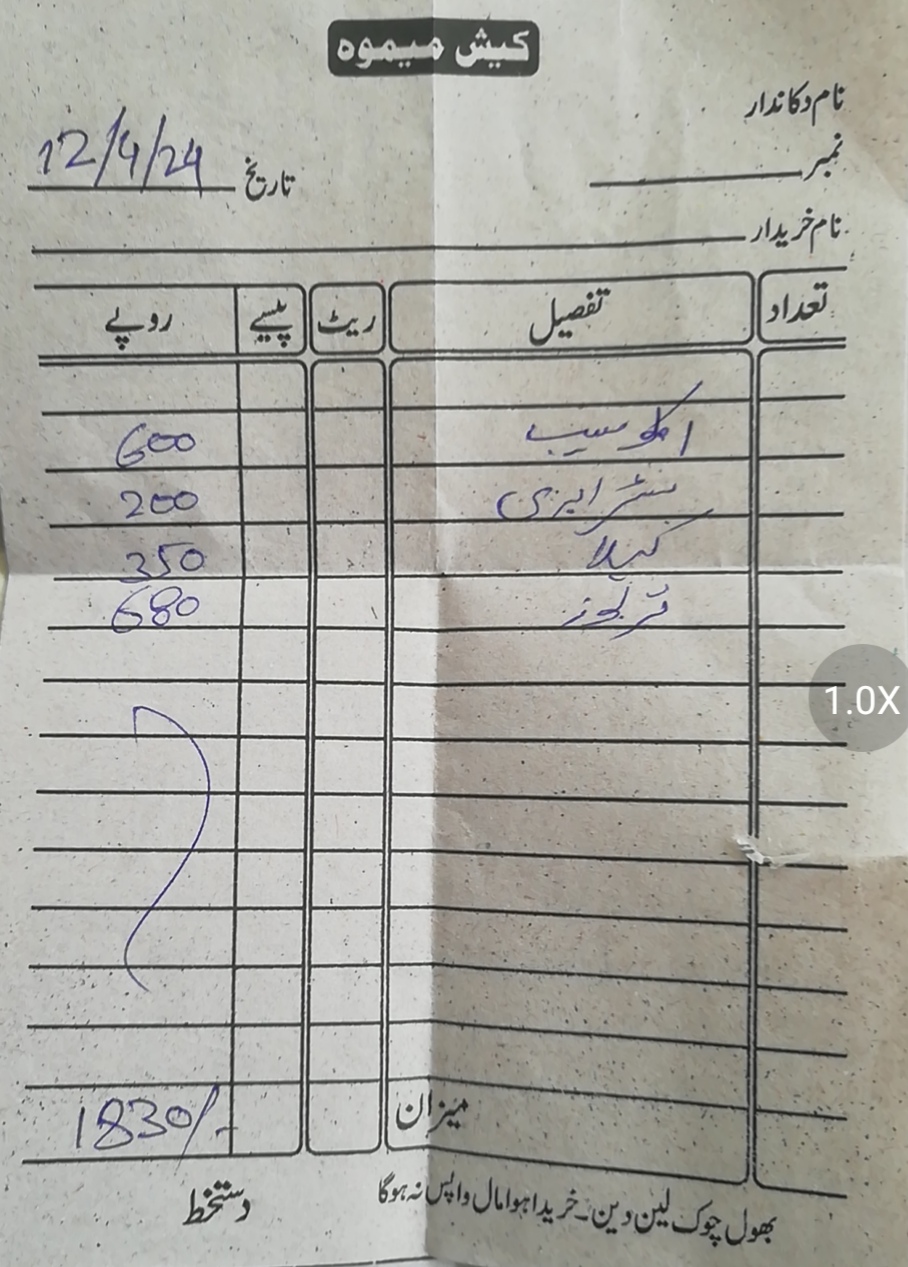 کیش میموہ
نام دکاندار
نمبر
تاریخ 12/4/24
نام خریدار
تعداد تفصیل ریٹ پیسے روپے
سیب 600
سٹرابری 200
کیلا 350
تربوز 680
میزان 1830/-
بھول چوک لین دین۔ خریدا ہوا مال واپس نہ ہوگا
دستخط
1.0X